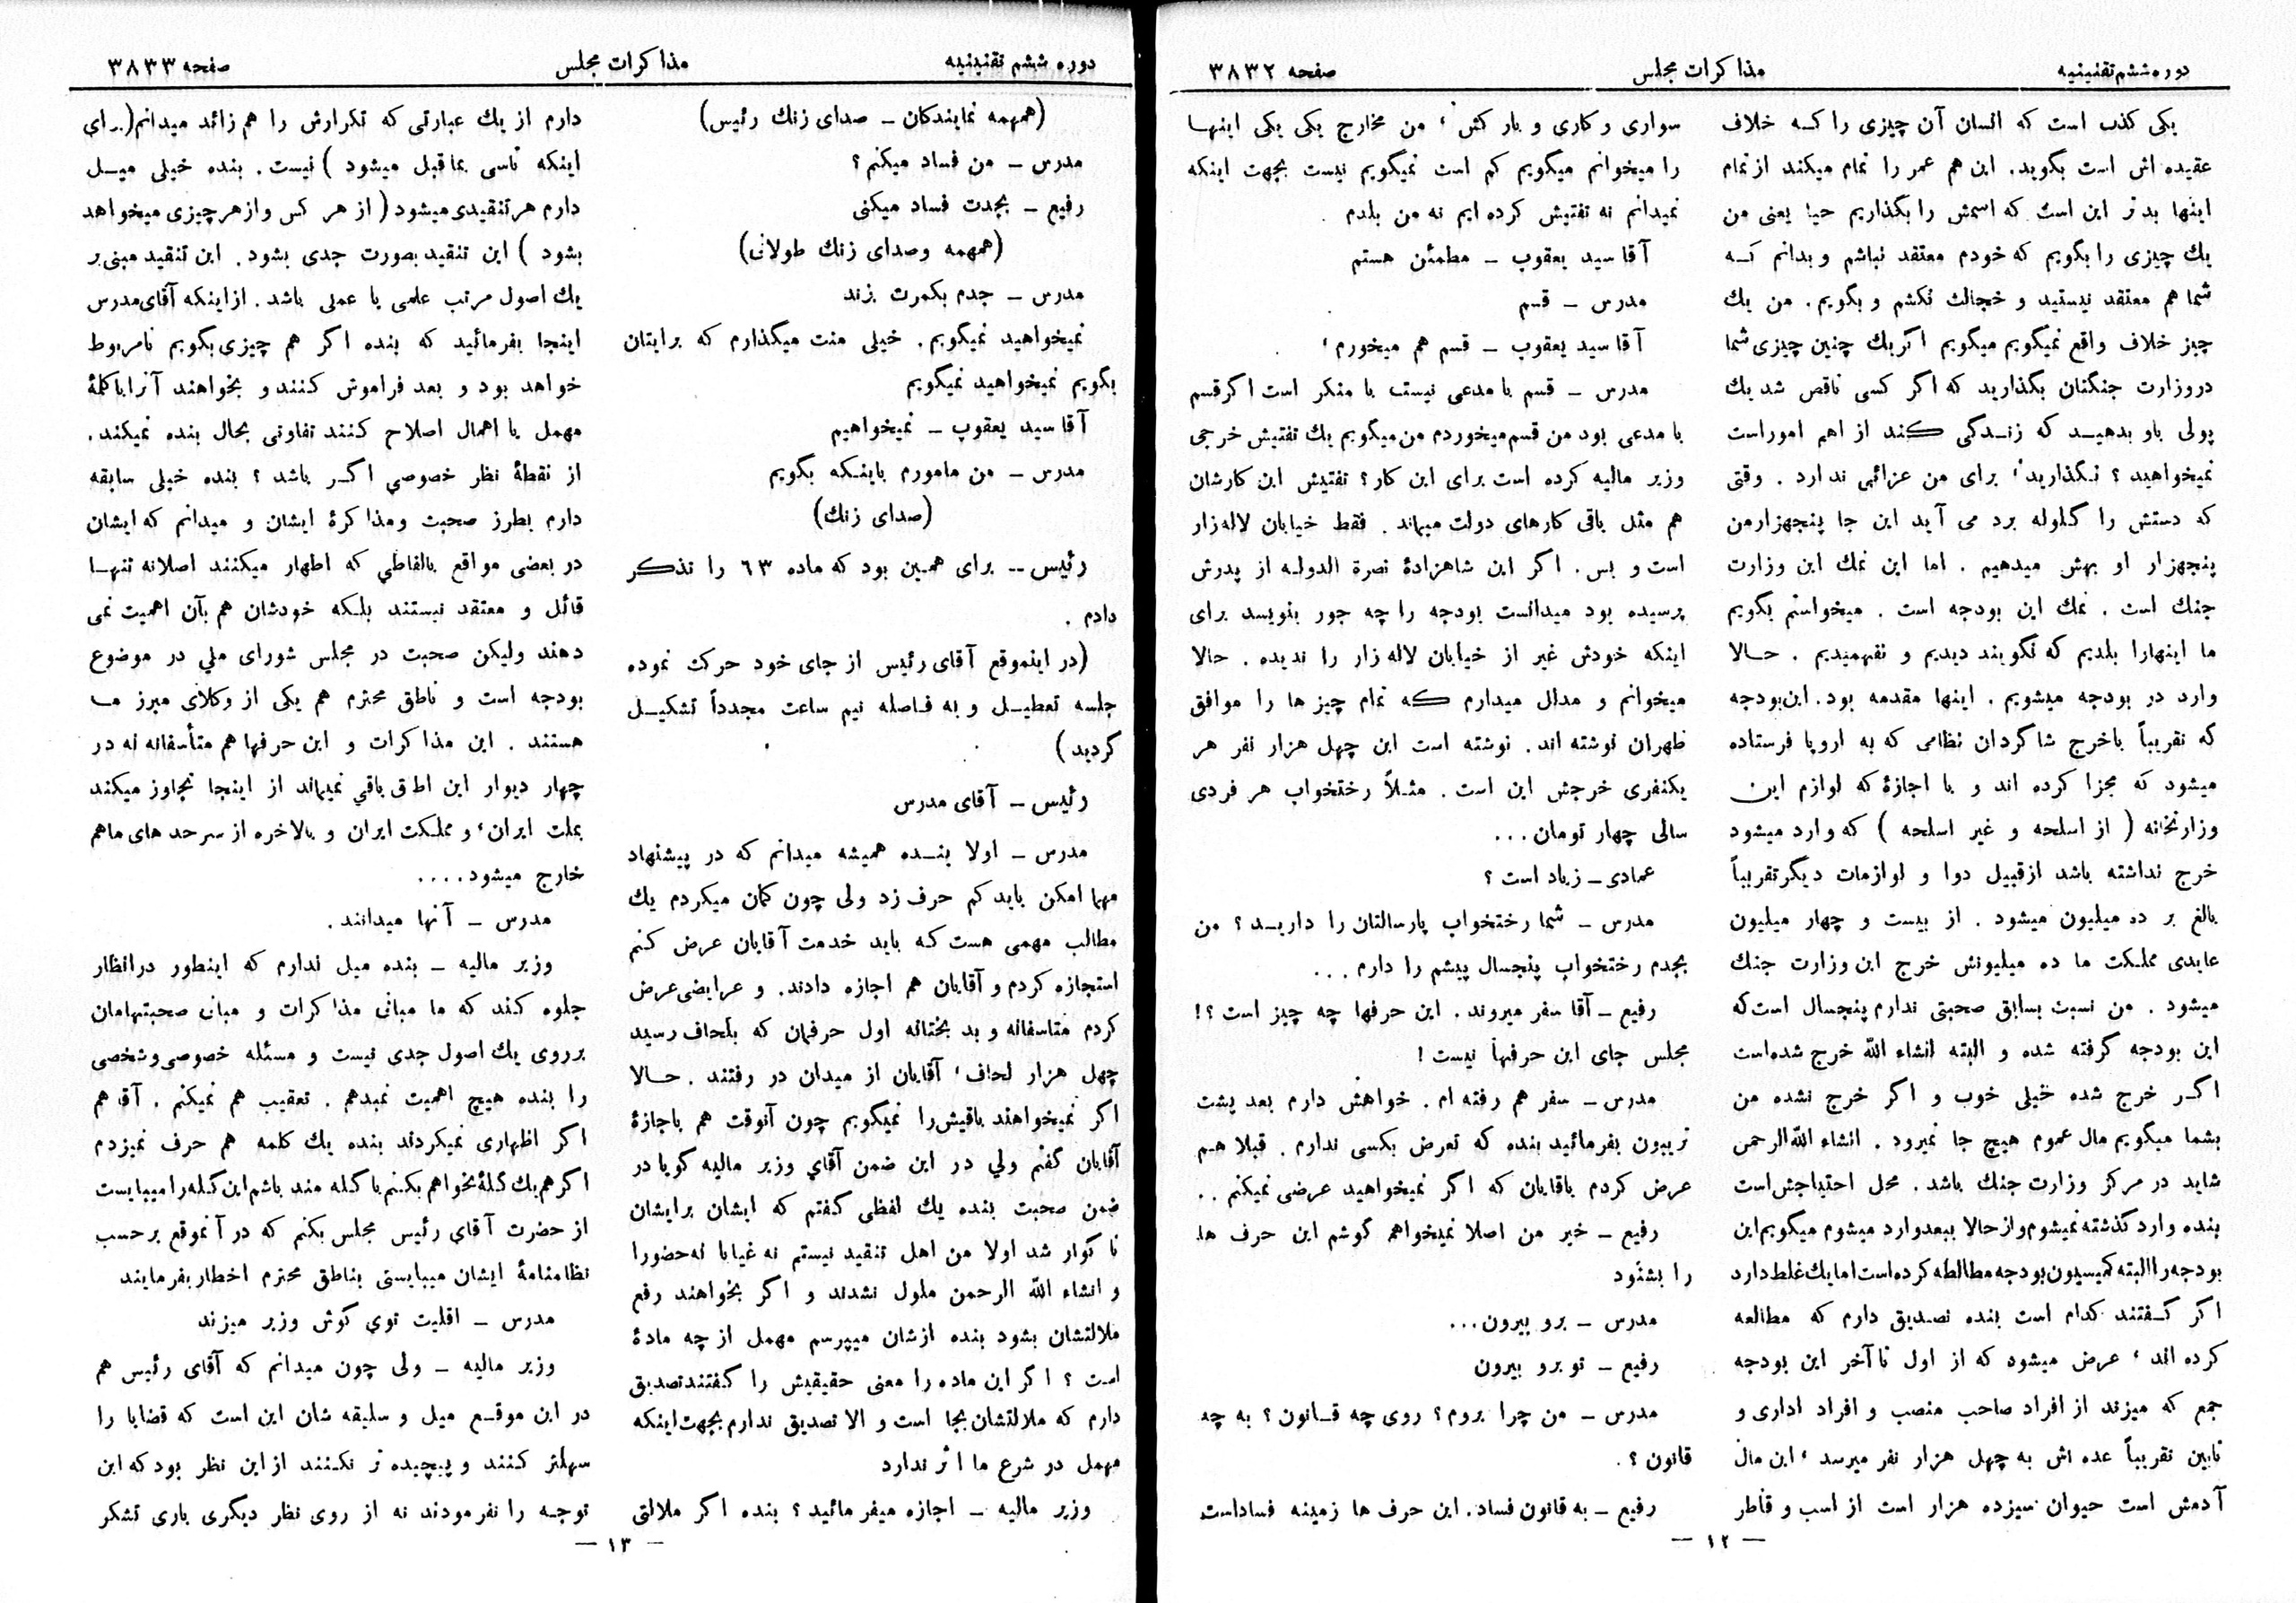 دوره ششم تقنینیه
مذاکرات مجلس
صفحه ۳۸۳۲
یکی کذب است که انسان آن چیزی را که خلاف
عقیده اش است بگوید. این هم عمر را تمام میکند از تمام
اینها بدتر این است که اسمش را بگذاریم حیا یعنی من
یك چیزی را بگویم که خودم معتقد نباشم و بدانم که
شما هم معتقد نیستید و خجالت نکشم و بگویم. من یك
چیز خلاف واقع نمیگویم میگویم اگر یك چنین چیزی شما
در وزارت جنگتان بگذارید که اگر کسی ناقص شد یك
پولی باو بدهید که زندگی کند از اهم امور است
نمیخواهید ؟ نگذارید، برای من عزائی ندارد . وقتی
که دستش را گلوله برد می آید این جا پنجهزار من
پنجهزار او بهش میدهیم . اما این نمك این وزارت
جنك است . نمك این بودجه است . میخواستم بگویم
ما اینهارا بلدیم که نگویند دیدیم و نفهمیدیم . حالا
وارد در بودجه میشویم . اینها مقدمه بود. این بودجه
که تقریباً باخرج شاگردان نظامی که به اروپا فرستاده
میشود که مجزا کرده اند و با اجازۀ که لوازم این
وزارتخانه ( از اسلحه و غیر اسلحه ) که وارد میشود
خرج نداشته باشد از قبیل دوا و لوازمات دیگر تقریباً
بالغ بر ده میلیون میشود . از بیست و چهار میلیون
عایدی مملکت ما ده میلیونش خرج این وزارت جنك
میشود . من نسبت بسابق صحبتی ندارم پنجسال است که
این بودجه گرفته شده و البته انشاء الله خرج شده است
اگر خرج شده خیلی خوب و اگر خرج نشده من
بشما میگویم مال عموم هیچ جا نمیرود . انشاء الله الرحمن
شاید در مرکز وزارت جنك باشد . محل احتیاجش است
بنده وارد گذشته نمیشوم و از حالا ببعد وارد میشوم میگویم این
بودجه را البته کمیسیون بودجه مطالعه کرده است اما یك غلط دارد
اگر گفتند کدام است بنده تصدیق دارم که مطالعه
کرده اند، عرض میشود که از اول تا آخر این بودجه
جمع که میزند از افراد صاحب منصب و افراد اداری و
تابین تقریباً عده اش به چهل هزار نفر میرسد، این مال
آدمش است حیوان سیزده هزار است از اسب و قاطر
سواری و کاری و بار کش، من مخارج یکی یکی اینها
را میخوانم میگویم کم است نمیگویم نیست بجهت اینکه
نمیدانم نه تفتیش کرده ایم نه من بلدم .
آقا سید یعقوب – مطمئن هستم
مدرس – قسم
آقا سید یعقوب – قسم هم میخورم،
مدرس – قسم با مدعی نیست با منکر است اگر قسم
با مدعی بود من قسم میخوردم من میگویم یك تفتیش خرجی
وزیر مالیه کرده است برای این کار؟ تفتیش این کارشان
هم مثل باقی کارهای دولت میماند . فقط خیابان لاله زار
است و بس. اگر این شاهزادۀ نصرة الدوله از پدرش
پرسیده بود میدانست بودجه را چه جور بنویسد برای
اینکه خودش غیر از خیابان لاله زار را ندیده . حالا
میخوانم و مدلل میدارم که تمام چیز ها را موافق
طهران نوشته اند. نوشته است این چهل هزار نفر هر
یکنفری خرجش این است . مثلاً رختخواب هر فردی
سالی چهار تومان...
عمادی – زیاد است ؟
مدرس – شما رختخواب پارسالتان را دارید ؟ من
بجدم رختخواب پنجسال پیشم را دارم ...
رفیع – آقا سفر میروند. این حرفها چه چیز است ؟!
مجلس جای این حرفها نیست !
مدرس – سفر هم رفته ام . خواهش دارم بعد پشت
تریبون بفرمائید بنده که تعرض بکسی ندارم . قبلا هم
عرض کردم باقایان که اگر نمیخواهید عرضی نمیکنم ..
رفیع – خیر من اصلا نمیخواهم گوشم این حرف ها
را بشنود
مدرس – برو بیرون...
رفیع – تو برو بیرون
مدرس – من چرا بروم؟ روی چه قانون ؟ به چه
قانون ؟ .
رفیع – به قانون فساد. این حرف ها زمینه فساد است
— ۱۲ —
دوره ششم تقنینیه
مذاکرات مجلس
صفحه ۳۸۳۳
(همهمه نمایندگان – صدای زنك رئیس)
مدرس – من فساد میکنم ؟
رفیع – بجدت فساد میکنی
(همهمه وصدای زنك طولانی)
مدرس – جدم بکمرت بزند
نمیخواهید نمیگویم . خیلی منت میگذارم که برایتان
بگویم نمیخواهید نمیگویم
آقا سید یعقوب – نمیخواهیم
مدرس – من مامورم باینکه بگویم
(صدای زنك)
رئیس -- برای همین بود که ماده ۶۳ را تذکر
دادم .
(در اینموقع آقای رئیس از جای خود حرکت نموده
جلسه تعطیل و به فاصله نیم ساعت مجدداً تشکیل
گردید )
رئیس – آقای مدرس
مدرس – اولا بنده همیشه میدانم که در پیشنهاد
مهما امکن باید کم حرف زد ولی چون گمان میکردم یك
مطالب مهمی هست که باید خدمت آقایان عرض کنم
استجازه کردم و آقایان هم اجازه دادند. و عرایضی عرض
کردم متاسفانه و بد بختانه اول حرفمان که بلحاف رسید
چهل هزار لحاف، آقایان از میدان در رفتند . حالا
اگر نمیخواهند باقیش را نمیگویم چون آنوقت هم باجازۀ
آقایان گفتم ولي در این ضمن آقاي وزیر مالیه گویا در
ضمن صحبت بنده یك لفظی گفتم که ایشان برایشان
نا گوار شد اولا من اهل تنقید نیستم نه غیابا نه حضورا
و انشاء الله الرحمن ملول نشدند و اگر بخواهند رفع
ملالتشان بشود بنده ازشان میپرسم مهمل از چه مادۀ
است ؟ اگر این ماده را معنی حقیقیش را گفتند تصدیق
دارم که ملالتشان بجا است و الا تصدیق ندارم بجهت اینکه
مهمل در شرع ما اثر ندارد
وزیر مالیه – اجازه میفرمائید ؟ بنده اگر ملالتی
دارم از یك عبارتی که تکرارش را هم زائد میدانم(برای
اینکه تاسی بماقبل میشود ) نیست . بنده خیلی میل
دارم هر تنقیدی میشود ( از هر کس و از هر چیزی میخواهد
بشود ) این تنقید بصورت جدی بشود . این تنقید مبنی بر
یك اصول مرتب علمی یا عملی باشد . از اینکه آقای مدرس
اینجا بفرمائید که بنده اگر هم چیزی بگویم نامربوط
خواهد بود و بعد فراموش کنند و بخواهند آنرا باکلمۀ
مهمل یا اهمال اصلاح کنند تفاوتی بحال بنده نمیکند.
از نقطۀ نظر خصوصی اگر باشد ؟ بنده خیلی سابقه
دارم بطرز صحبت ومذاکرۀ ایشان و میدانم که ایشان
در بعضی مواقع بالفاظي که اظهار میکنند اصلا نه تنها
قائل و معتقد نیستند بلکه خودشان هم بآن اهمیت نمی
دهند ولیکن صحبت در مجلس شورای ملي در موضوع
بودجه است و ناطق محترم هم یکی از وکلای مبرز ما
هستند . این مذاکرات و این حرفها هم متأسفانه نه در
چهار دیوار این اطاق باقي نمیماند از اینجا تجاوز میکند
بملت ایران، و مملکت ایران و بالاخره از سرحد های ماهم
خارج میشود....
مدرس – آنها میدانند.
وزیر مالیه – بنده میل ندارم که اینطور در انظار
جلوه کند که ما مبانی مذاکرات و مبانی صحبتهامان
بر روی یك اصول جدی نیست و مسئله خصوصی و شخصی
را بنده هیچ اهمیت نمیدهم . تعقیب هم نمیکنم . آقا هم
اگر اظهاری نمیکردند بنده یك کلمه هم حرف نمیزدم
اگر هم یك گلۀ بخواهم بکنم یا گله مند باشم این گله را میبایست
از حضرت آقای رئیس مجلس بکنم که در آنموقع بر حسب
نظامنامۀ ایشان میبایستی بناطق محترم اخطار بفرمایند
مدرس – اقلیت توی گوش وزیر میزند
وزیر مالیه – ولی چون میدانم که آقای رئیس هم
در این موقع میل و سلیقه شان این است که قضایا را
سهلتر کنند و پیچیده تر نکنند از این نظر بود که این
توجه را نفرمودند نه از روی نظر دیگری باری تشکر
— ۱۳ —